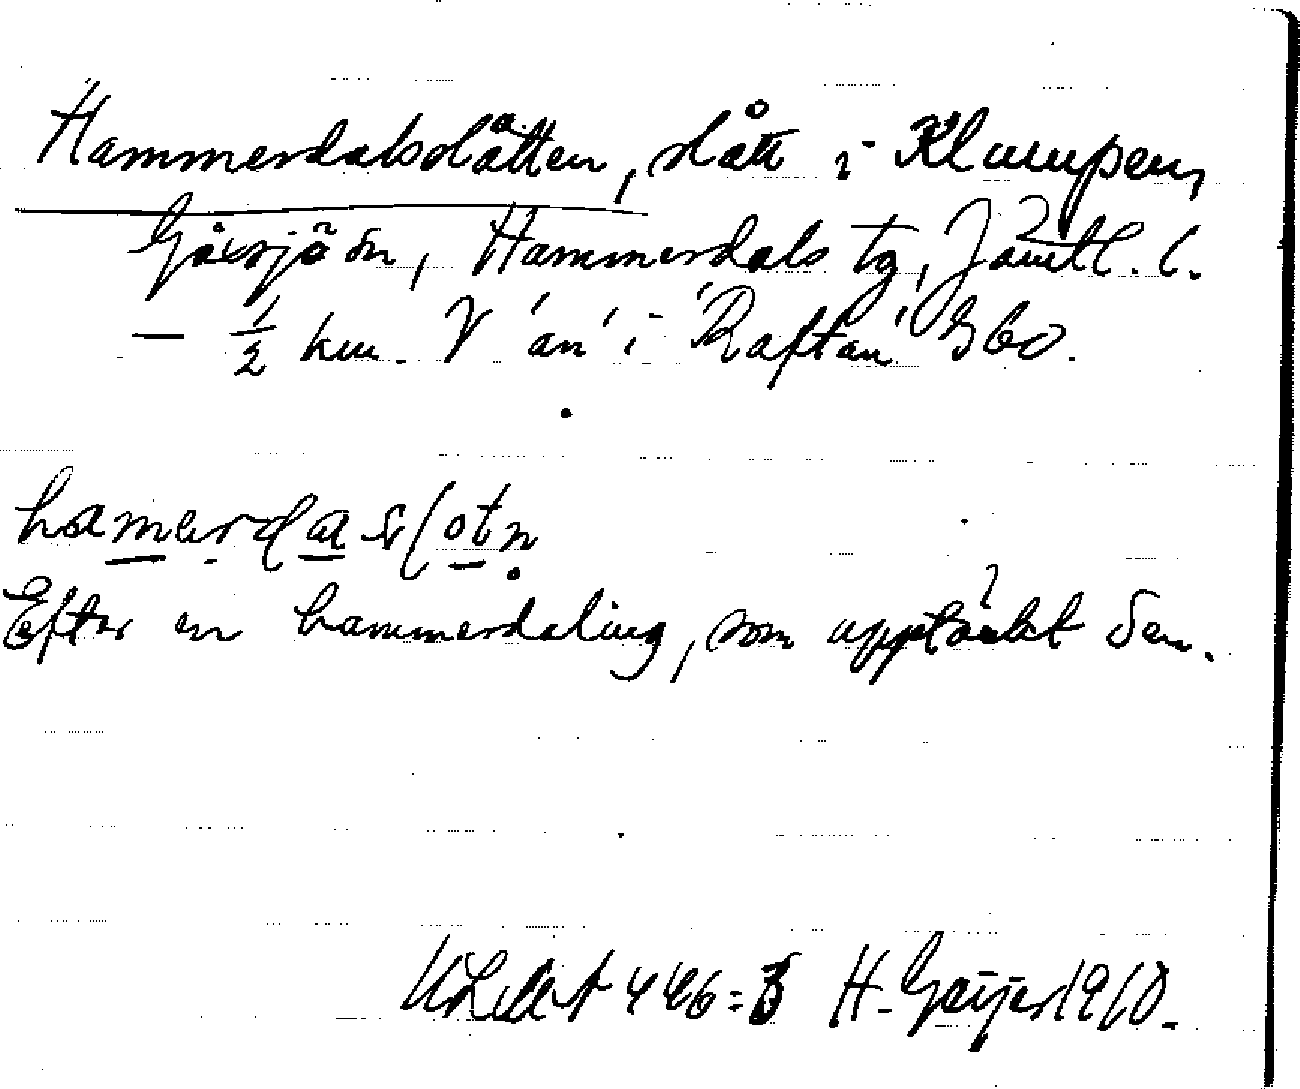 Hammerdalsslåtten, slått i Klumpen,
Gåxsjö sn, Hammerdals tg, Jämtl. l.
— ½ km. V 'an' i 'Raftan' 360.
hamerdaslotn
Efter en hammerdaling, som upptäckt den.
446:3 H. Geijer 1910.